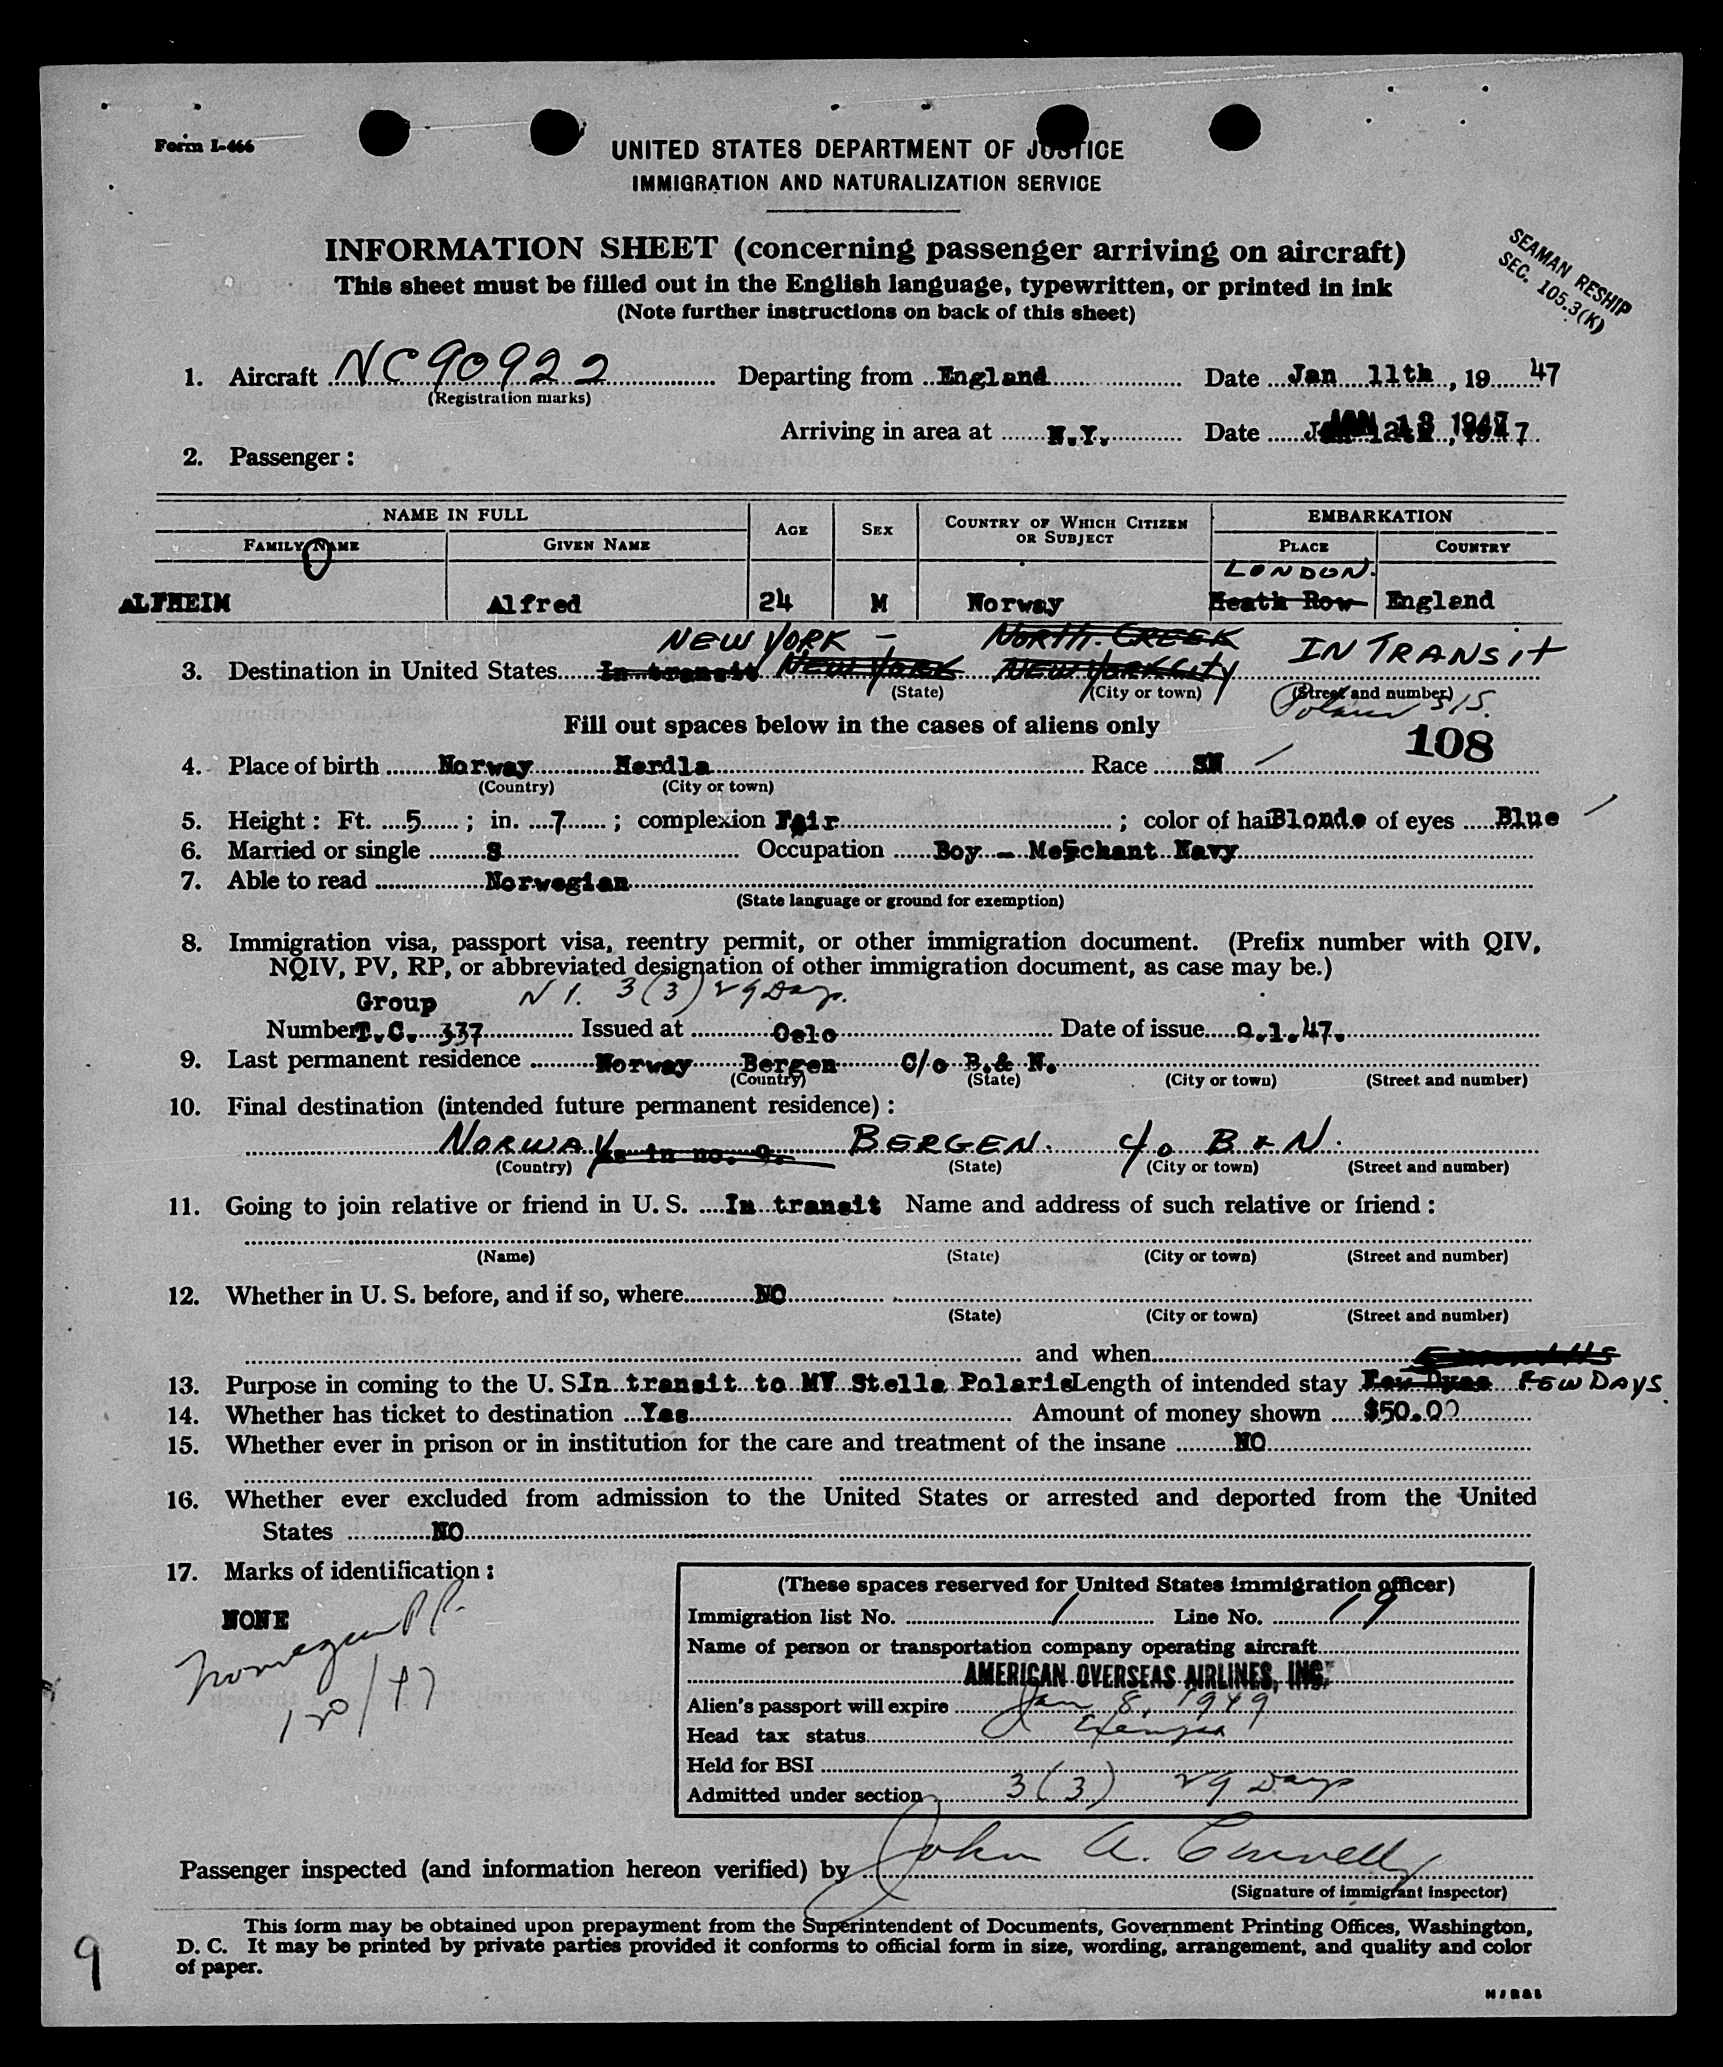 Form I-466
UNITED STATES DEPARTMENT OF JUSTICE
IMMIGRATION AND NATURALIZATION SERVICE
INFORMATION SHEET (concerning passenger arriving on aircraft)
This sheet must be filled out in the English language, typewritten, or printed in ink
(Note further instructions on back of this sheet)
SEAMAN RESHIP
SEC. 105.3(K)
1. Aircraft NC90922 Departing from England Date Jan 11th, 19 47
(Registration marks)
Arriving in area at N.Y. Date JAN 13 1947
2. Passenger:
NAME IN FULL AGE SEX COUNTRY OF WHICH CITIZEN OR SUBJECT EMBARKATION
FAMILY NAME GIVEN NAME PLACE COUNTRY
LONDON.
ALFHEIM Alfred 24 M Norway Heath Row England
NEW YORK - NORTH CREEK IN TRANSIT
3. Destination in United States In transit NEW YORK NEW YORK City
(State) (City or town) (Street and number)
Fill out spaces below in the cases of aliens only
108
4. Place of birth Norway Herdla Race SN
(Country) (City or town)
5. Height: Ft. 5; in. 7; complexion Fair; color of hair Blonde of eyes Blue
6. Married or single S Occupation Boy - Merchant Navy
7. Able to read Norwegian
(State language or ground for exemption)
8. Immigration visa, passport visa, reentry permit, or other immigration document. (Prefix number with QIV,
NQIV, PV, RP, or abbreviated designation of other immigration document, as case may be.)
Group 3(3) 29 Days.
Number T.C. 337 Issued at Oslo Date of issue 9.1.47.
9. Last permanent residence Norway Bergen C/o B.& N.
(Country) (State) (City or town) (Street and number)
10. Final destination (intended future permanent residence):
NORWAY As in no. 9. BERGEN. c/o B & N.
(Country) (State) (City or town) (Street and number)
11. Going to join relative or friend in U. S. In transit Name and address of such relative or friend:
(Name) (State) (City or town) (Street and number)
12. Whether in U. S. before, and if so, where NO
(State) (City or town) (Street and number)
and when
13. Purpose in coming to the U. S In transit to MV Stella Polaris Length of intended stay Few Dyas FEW DAYS
14. Whether has ticket to destination Yes Amount of money shown $50.00
15. Whether ever in prison or in institution for the care and treatment of the insane NO
16. Whether ever excluded from admission to the United States or arrested and deported from the United
States NO
17. Marks of identification:
NONE
Norwegian PP.
(These spaces reserved for United States immigration officer)
Immigration list No. 1 Line No. 19
Name of person or transportation company operating aircraft
AMERICAN OVERSEAS AIRLINES, INC.
Alien's passport will expire Jan 8, 1949
Head tax status
Held for BSI
Admitted under section 3(3) 29 Days
Passenger inspected (and information hereon verified) by John A. Connelly
(Signature of immigrant inspector)
This form may be obtained upon prepayment from the Superintendent of Documents, Government Printing Offices, Washington,
D. C. It may be printed by private parties provided it conforms to official form in size, wording, arrangement, and quality and color
of paper.
9